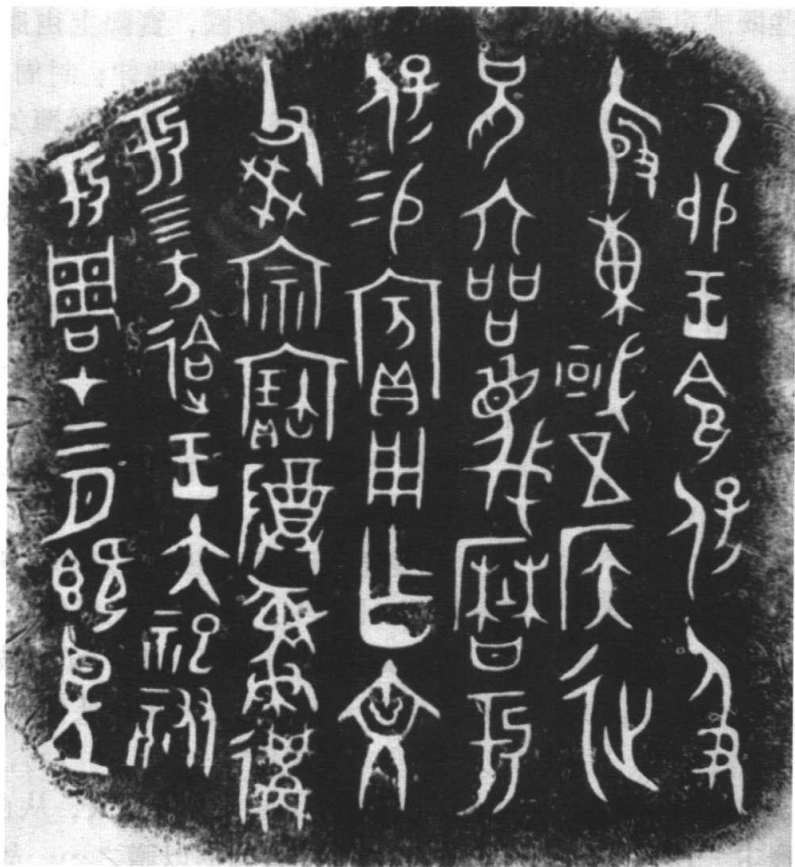 乙卯王令保及
殷東或五侯㢟
兄六品蔑曆于
保易賓用乍文
父癸宗寶尊彝遘
于四方迨王大祀祓
于周才二月既望